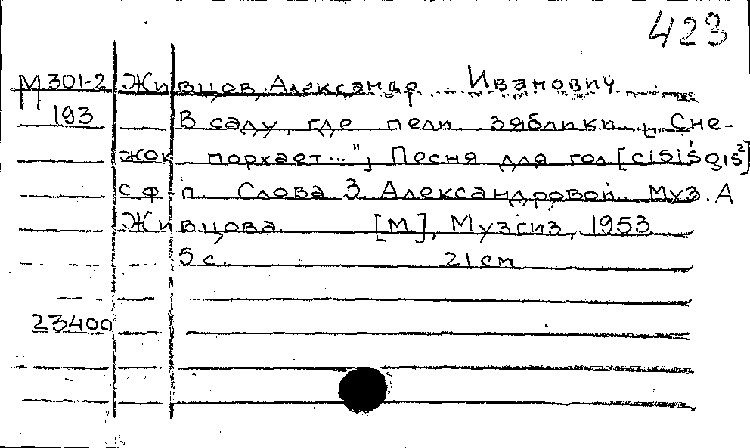 423
М301-2 Живцов, Александр Иванович
193 В саду, где пели зяблики, Сне-
жок порхает...", Песня для гол
с ф п. Слова З. Александровой. Муз. А
Живцова. [М], Музгиз, 1953
5 с. 21 cm
23400